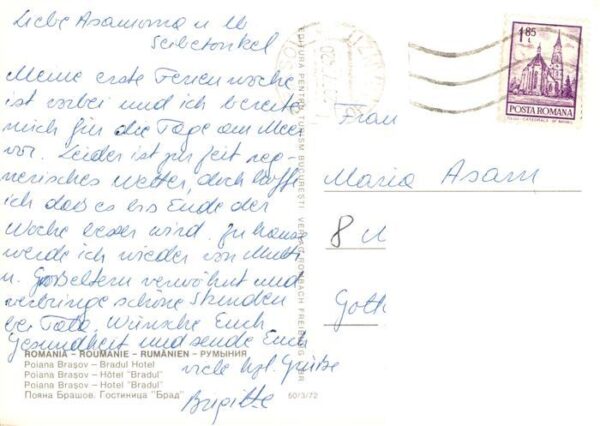 Liebe Asamoma u. lb
Seibetonkel
Meine erste Ferienwoche
ist vorbei und ich bereite
mich für die Tage am Meer
vor. Leider ist zur Zeit reg-
nerisches Wetter, doch hoffe
ich daß es bis Ende der
Woche besser wird. Zu hause
werde ich wieder von Mutti
u. Großeltern verwöhnt und
verbringe schöne Stunden
bei Wünsche Euch
Gesundheit und sende Euch
viele hzl. Grüße
Brigitte
ROMANIA - ROUMANIE - RUMÄNIEN - РУМЫНИЯ
Poiana Brașov – Bradul Hotel
Poiana Brașov – Hôtel "Bradul"
Poiana Brașov - Hotel "Bradul"
Пояна Брашов. Гостиница "Брад"
60/3/72
EDITURA PENTRU TURISM BUCUREȘTI VERLAG ROMBACH FREIBURG
1,85 L
POSTA ROMANA
Frau
Maria Asam
8 M
Goth